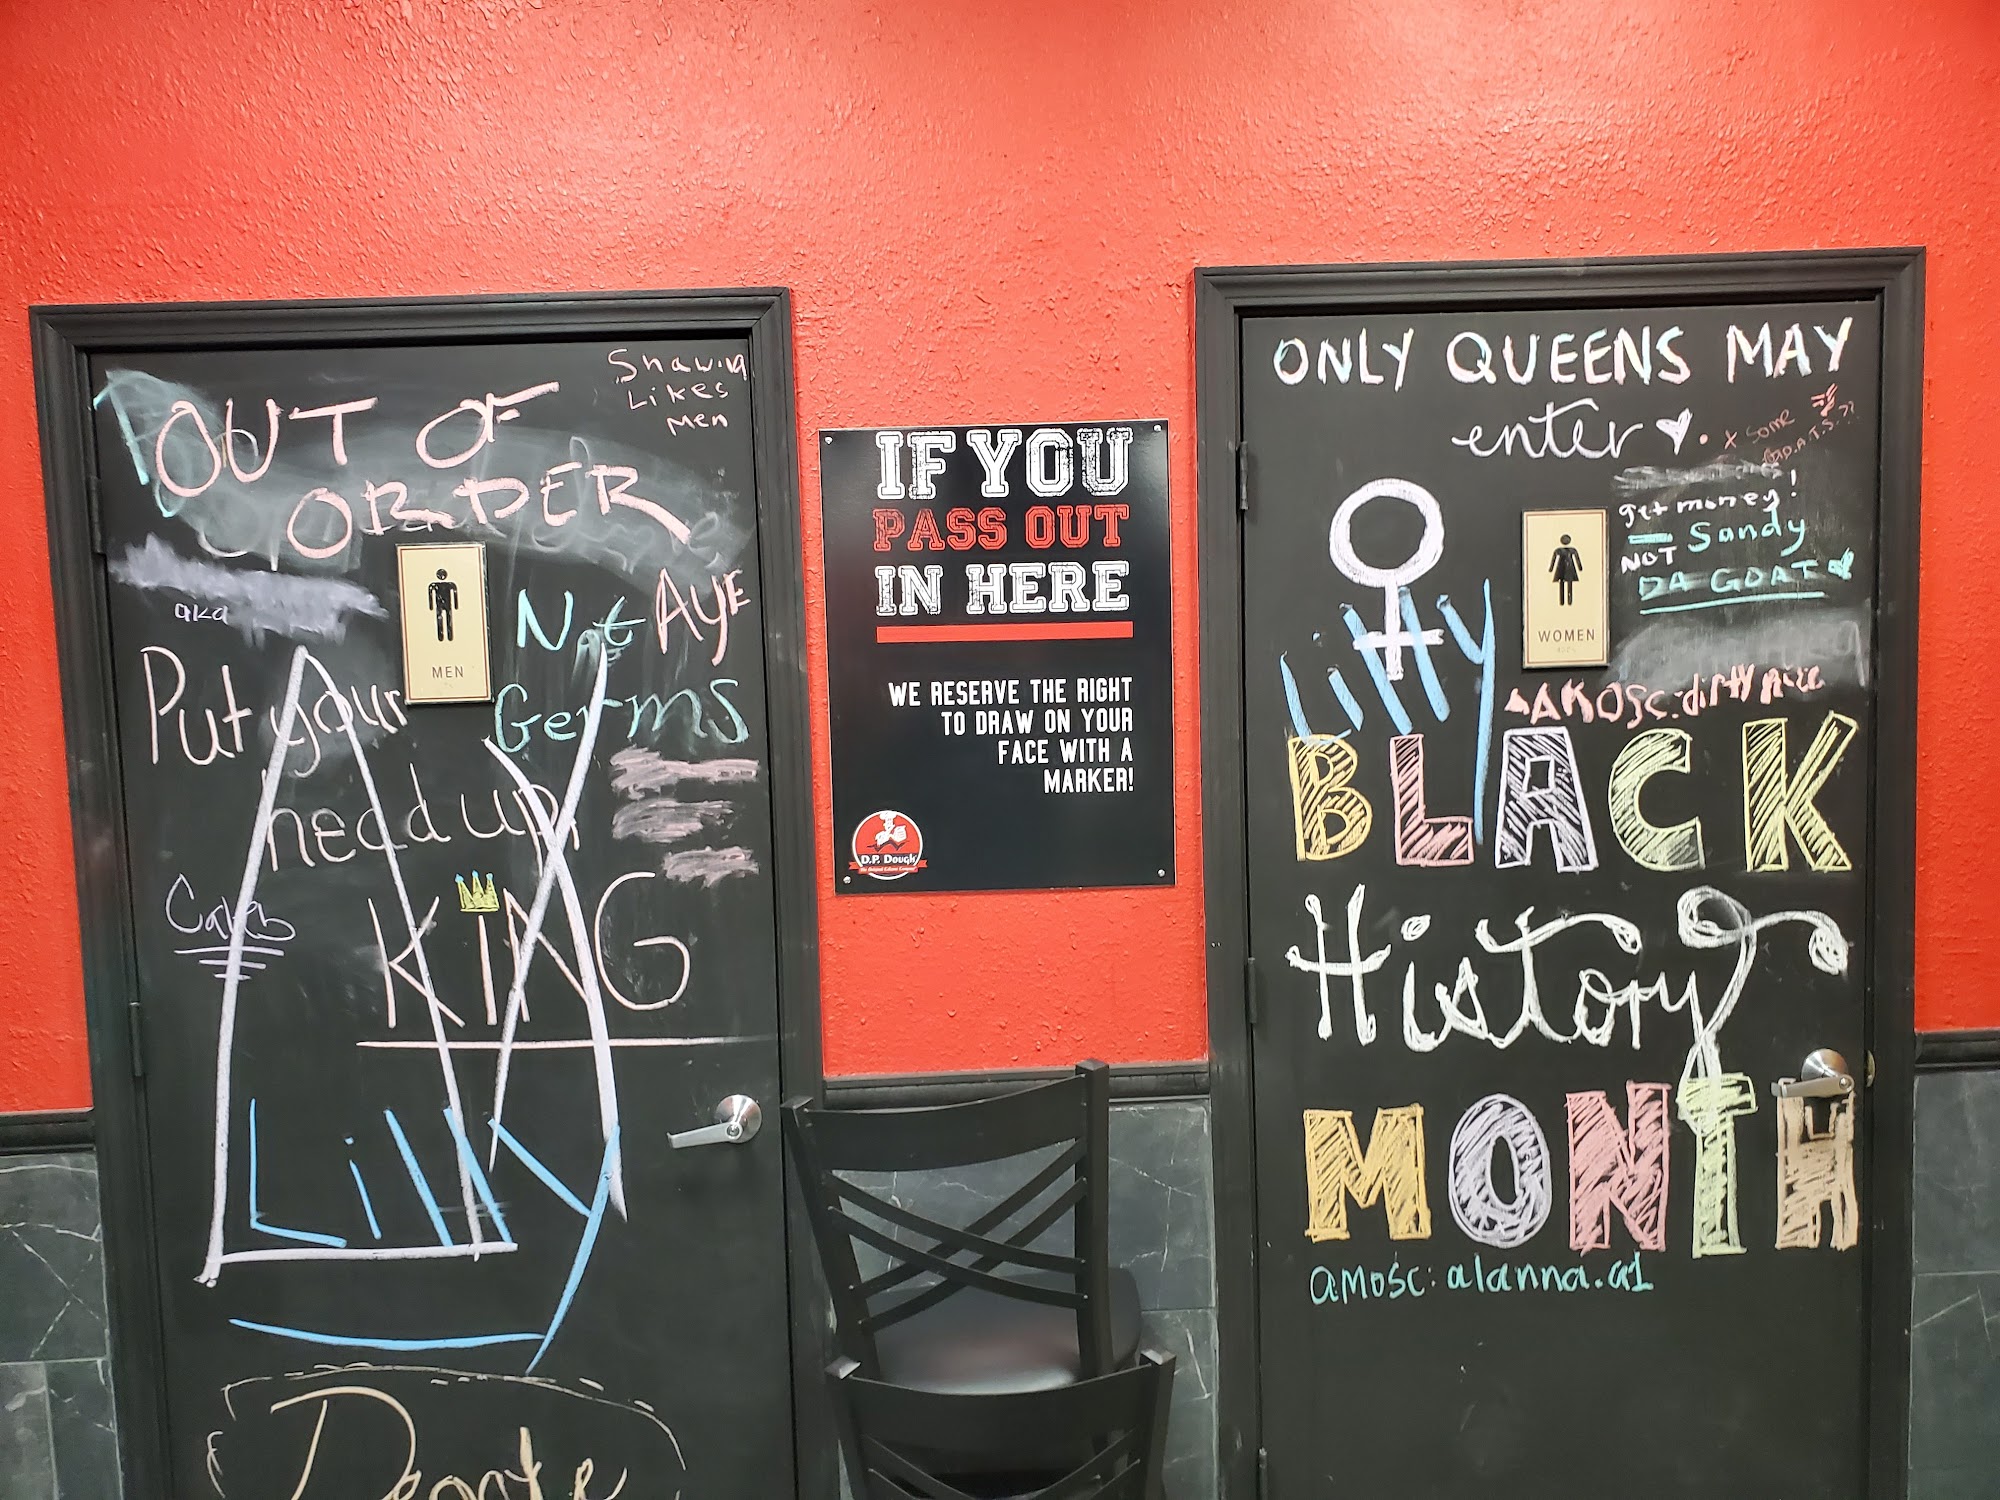 OUT OF
ORDER
Shawna
Likes
Men
aka
MEN
Not
Germs
AYE
Put your
head up
KING
Caleb
Lilly
IF YOU
PASS OUT
IN HERE
WE RESERVE THE RIGHT
TO DRAW ON YOUR
FACE WITH A
MARKER!
D.P. Dough
ONLY QUEENS MAY
enter
x some
get money!
Sandy
NOT
DA GOAT
WOMEN
Lilly
AMOSC: dirtyrice
BLACK
History
MONTH
aMOSC: alanna.a1